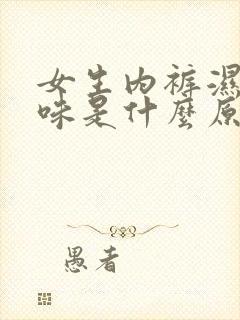 女生内裤濕
味是什麼原
愚者